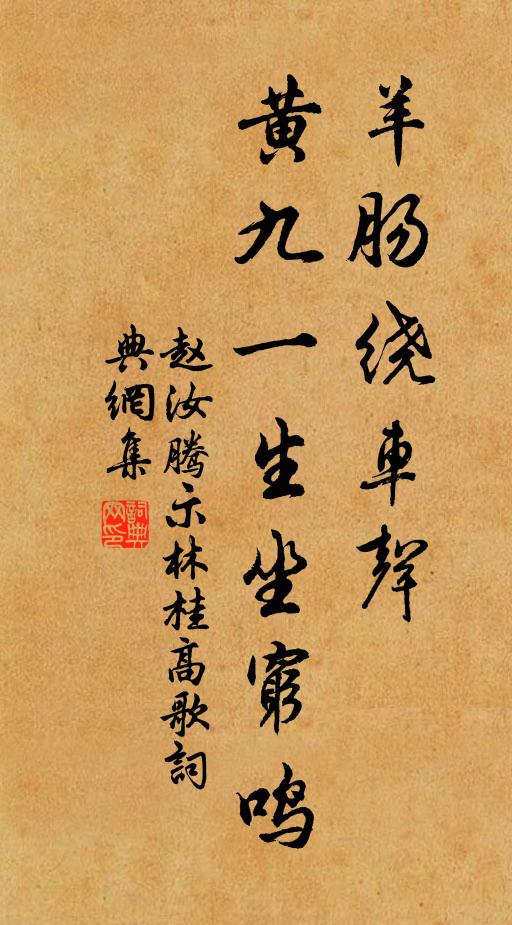 羊肠绕車聲
黄九一生坐窮鸣
赵汝腾示林桂高歌詞
典網集
詞典網印